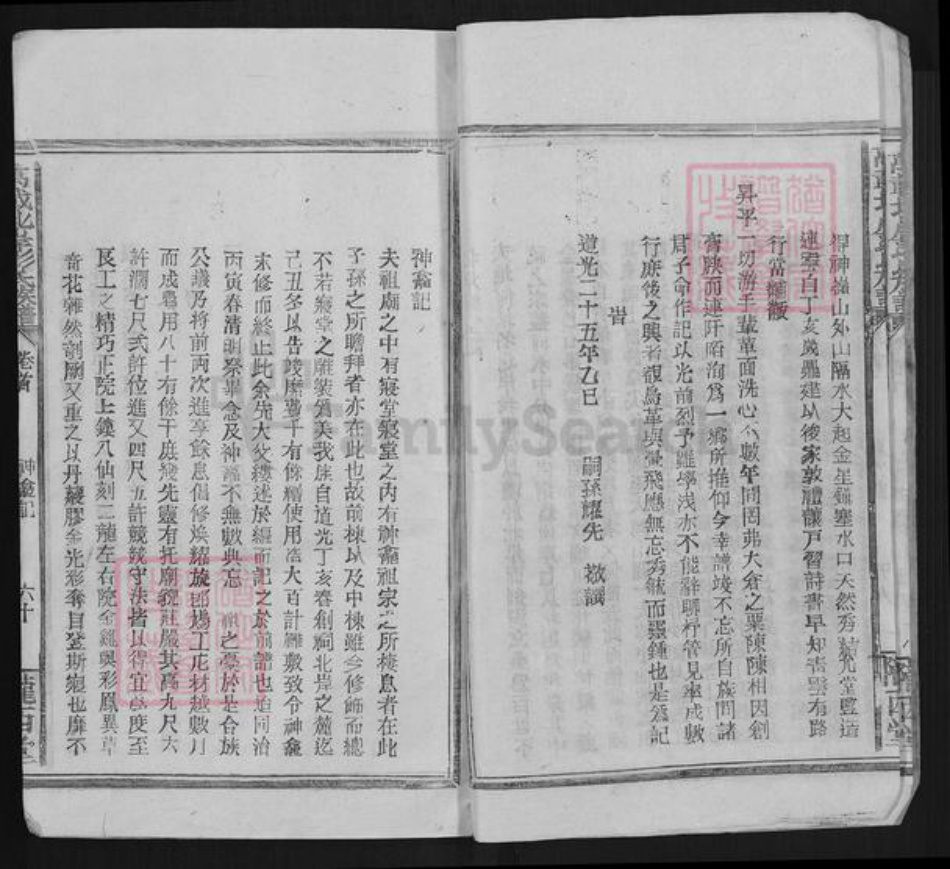 得神龜山外山隔水大起金星鎖塞水口天然秀結先堂監造
連雲自丁亥歲鼎建以後家敦禮讓戶習詩書早知靑雲有路
行當顯報
昇平一切游手輩革面洗心不數年間罔弗大倉之粟陳陳相因創
膏腴而連阡陌洵爲一鄉所推仰今幸譜竣不忘所自族間諸
君子命作記以光前烈予雖學淺亦不能辭聊抒管見率成數
行庶後之興者觀鳥革與翬飛應無忘秀毓而靈鍾也是爲記
旹
道光二十五年乙巳 嗣孫耀先 敬譔
神龕記
夫祖廟之中有寢堂寢堂之內有神龕祖宗之所棲息者在此
子孫之所瞻拜者亦在此也故前棟以及中棟雖令修飾而總
不若寢堂之雕裝爲美我族自道光丁亥春創祠北岸之麓迄
己丑冬以告竣糜費千有餘緡使用浩大百計難敷致令神龕
未修而終止此余先大父縷述於編而記之於前譜也迨同治
丙寅春清明祭畢念及神龕不無數典忘祖之憂於是合族
公議乃將前兩次進享餘息倡修煥耀旋即鳩工庀材越數月
而成焉用八十有餘千庶幾先靈有托廟貌莊嚴其高九尺六
許濶七尺弍許位進又四尺五許競競守法皆以得宜爲度至
艮工之精巧正院上鐫八仙刻二龍左右院金雞與彩鳳異草
奇花雜然剞劂又重之以丹雘膠金光彩奪目登斯寢也靡不
卷首 神龕記 六十